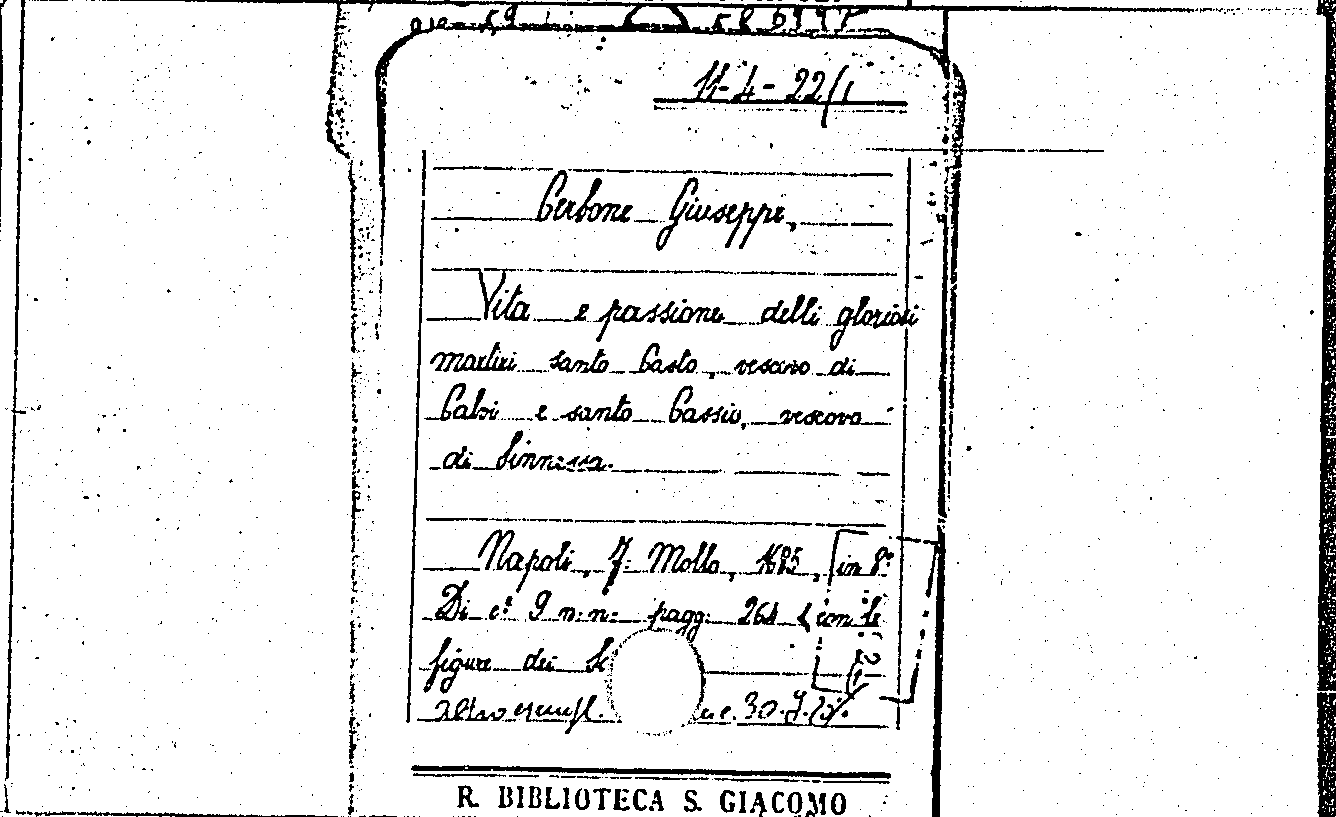 11-4-22/1
Cerbone Giuseppe,
Vita e passione delli gloriosi
martiri santo Casto, vescovo di
Calvi e santo Cassio, vescovo
di Sinnessa.
Napoli, J. Mollo, 1685, in 8°
Di c. 9 n.n. pagg. 264 con le
figure dei
altro esempl. 30.
R. BIBLIOTECA S. GIACOMO